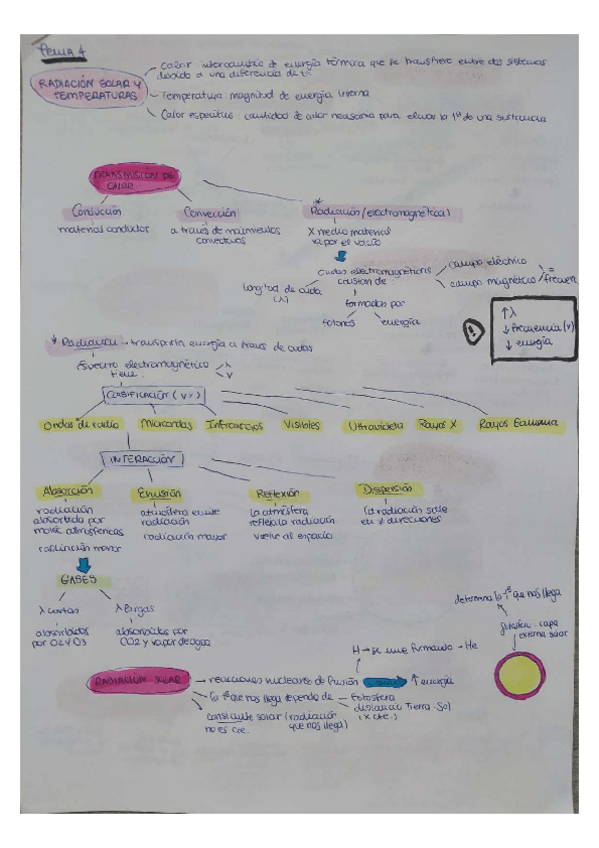 Tema 4
RADIACIÓN SOLAR Y
TEMPERATURAS
Calor: intercambio de energía térmica que se transfiere entre dos sistemas
debido a una diferencia de tª
Temperatura: magnitud de energía interna
Calor específico: cantidad de calor necesaria para elevar la 1ª de una sustancia
TRANSMISIÓN DE
CALOR
Conducción
material conductor
Convección
a través de movimientos
convectivos
* Radiación (electromagnética)
X medio material
va por el vacío
ondas electromagnéticas
constan de:
campo eléctrico
campo magnético
= frecuen
longitud de onda
(λ)
formadas por
fotones
energía
!
↑ λ
↓ frecuencia (v)
↓ energía
* Radiación → transporta energía a través de ondas
Espectro electromagnético
tiene
λ
v
CLASIFICACIÓN (v >)
Ondas de radio
Microondas
Infrarrojos
Visibles
Ultravioleta
Rayos X
Rayos Gamma
INTERACCIÓN
Absorción
radiación
absorbida por
moléc atmosféricas
radiación menor
Emisión
atmósfera emite
radiación
radiación mayor
Reflexión
la atmósfera
refleja la radiación
vuelve al espacio
Dispersión
la radiación sale
en ≠ direcciones
GASES
λ cortas
absorbidas
por O2 y O3
λ largas
absorbidas por
CO2 y vapor de agua
determina la tª que nos llega
capa
externa solar
RADIACIÓN SOLAR
reacciones nucleares de fusión
H → se une formando → He
↑ energía
la tª que nos llega depende de
Fotosfera
distancia Tierra-Sol
(X cte.)
constante solar (radiación
que nos llega)
no es cte.